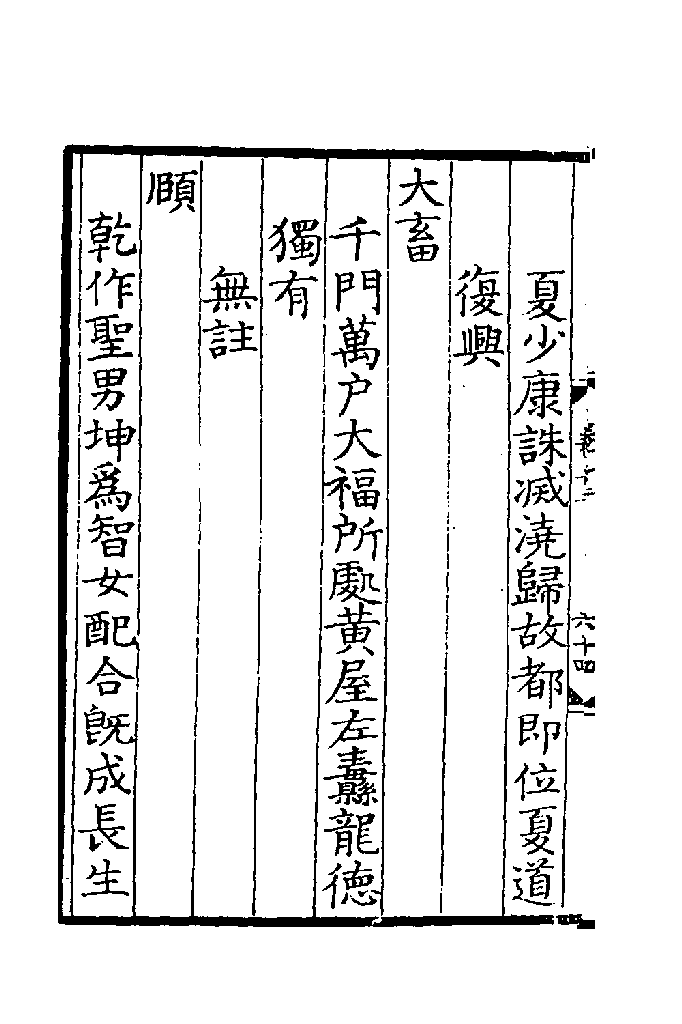 夏少康誅滅澆歸故都即位夏道
復興
大畜
千門萬户大福所處黄屋左纛龍德
獨有
無註
頤
乾作聖男坤爲智女配合既成長生
卷十二
六十四